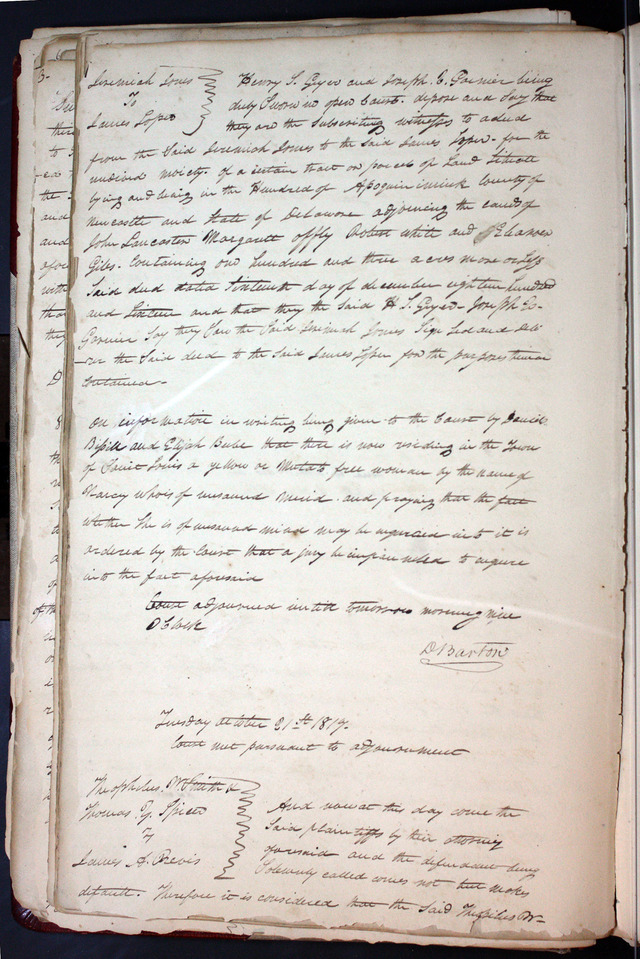 Jeremiah Jones
To
James Loper
Henry S. Geyer and Joseph. C. Garnier being
duly Sworn in open Court. depose and Say that
they are the Subscribing witnesses to a deed
from the Said Jeremiah Jones to the Said James Loper - for the
undivided moiety. of a certain tract or parcel of Land Situate
lying and being in the Hundred of Apoquiniminck County of
Newcastle and State of Delaware adjoining the lands of
John Lancaster Margarett offly Robert white and Eleanor
Giles. Containing one hundred and three acres more or Less
Said deed dated Sixteenth day of december eighteen hundred
and Sixteen and that they the Said H. S. Geyer - Joseph C.
Garnier Say they Saw the Said Jeremiah Jones Sign Seal and Deli
ver the Said deed to the Said James Loper for the purposes therein
Contained -
On information in writing being given to the Court by Daniel
Bissell and Elijah Bebe that there is now residing in the Town
of Saint Louis a yellow or Mulato free woman by the name of
Narcy who is of unsound Mind. and praying that the fact
whether She is of unsound mind may be enquired into it is
ordered by the Court that a jury be empannelled to enquire
into the fact aforesaid
Court adjourned until tomorrow morning nine
O Clock
D Barton
Tuesday October 21st 1817.
Court met pursuant to adjournment
Theophilus. W Smith &
Thomas Y. Spicer
vs
James A. Previs
And now at this day come the
Said plaintiffs by their attorney
aforesaid and the defendant being
Solemnly called comes not but makes
default. Therefore it is considered that the Said Theophilus W-